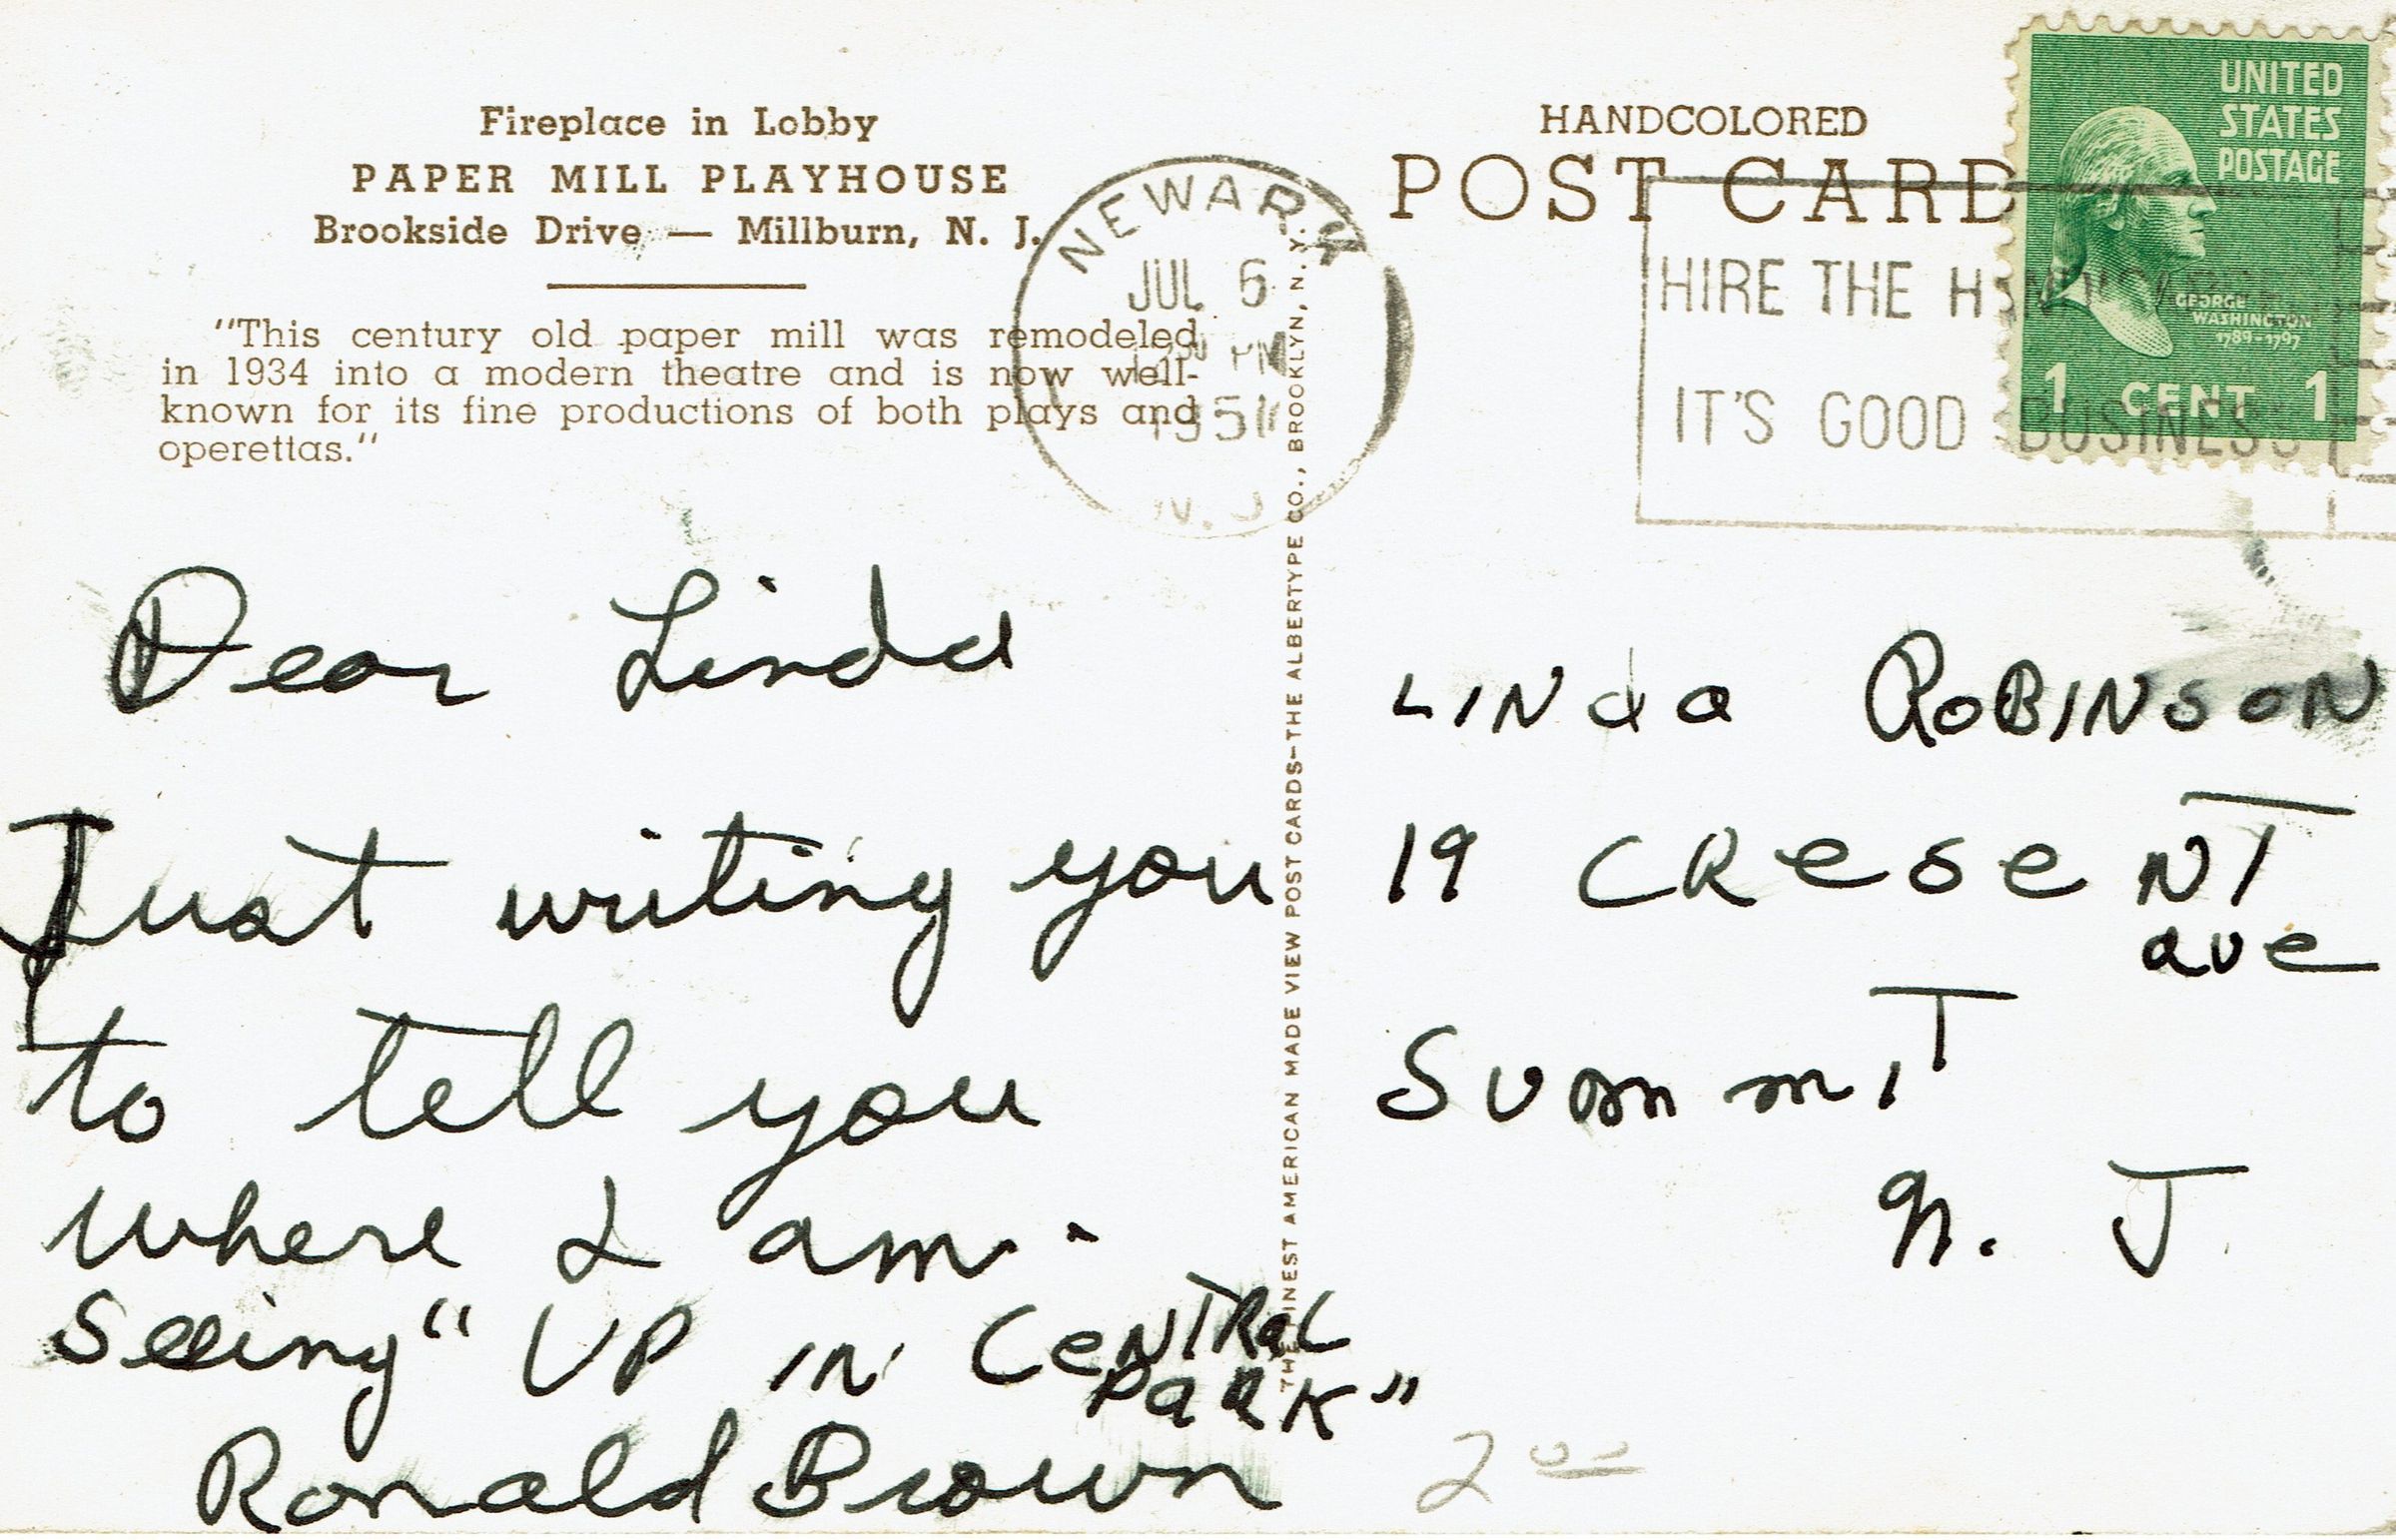 Fireplace in Lobby
PAPER MILL PLAYHOUSE
Brookside Drive — Millburn, N. J.
"This century old paper mill was remodeled
in 1934 into a modern theatre and is now well-
known for its fine productions of both plays and
operettas."
NEWARK
JUL 6
PM
1951
N. J.
HANDCOLORED
POST CARD
HIRE THE
IT'S GOOD BUSINESS
UNITED
STATES
POSTAGE
GEORGE
WASHINGTON
1789-1797
1 CENT 1
THE FINEST AMERICAN MADE VIEW POST CARDS—THE ALBERTYPE CO., BROOKLYN, N. Y.
Dear Linda
Just writing you
to tell you
where I am.
Seeing "UP IN CeNTRaL
PaRK"
Ronald Brown
LINda RoBINsoN
19 CReseNT
ave
SummiT
N. J.
2 00